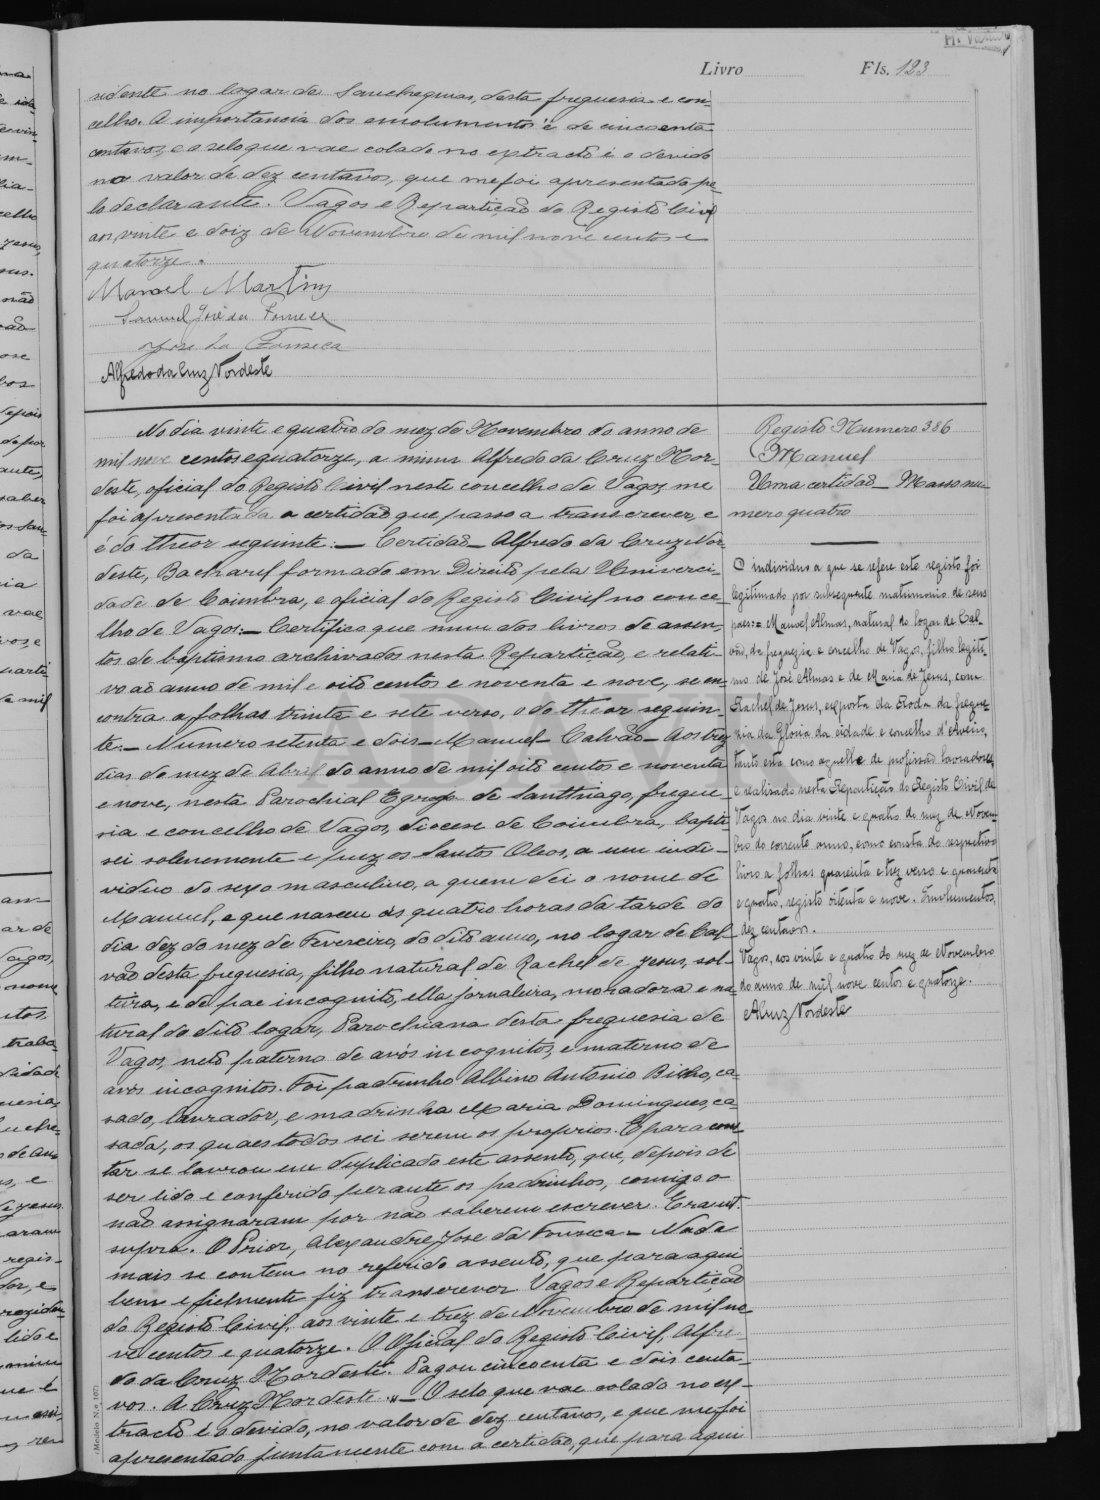 Livro Fls. 123
sidente no logar de Sanchequias, desta freguesia e con-
celho. A importancia dos emolumentos é de cincoenta
centavos, e o selo que vae colado no extracto é o devido
no valor de dez centavos, que me foi apresentado pe-
lo declarante. Vagos e Repartição do Registo Civil
aos vinte e doiz de Novembro de mil nove centos e
quatorze.
Manoel Martins
Samuel José da Fonseca
José da Fonseca
Alfredo da Cruz Nordeste
No dia vinte e quatro do mez de Novembro do anno de
mil nove centos e quatorze, a mim Alfredo da Cruz Nor-
deste, oficial do Registo Civil neste concelho de Vagos me
foi apresentada a certidão que passo a transcrever, e
é do theor seguinte: — Certidão — Alfredo da Cruz Nor
deste, Bacharel formado em Direito pela Universi-
dade de Coimbra, e oficial do Registo Civil no conce-
lho de Vagos: — Certifico que num dos livros de assen-
tos de baptismo archivados nesta Repartição, e relati-
vo ao anno de mil e oito centos e noventa e nove, se en-
contra a folhas trinta e sete verso, o do theor seguin-
te: — Numero setenta e dois — Manuel — Calvão — Aos trez
dias do mez de Abril do anno de mil oito centos e noventa
e nove, nesta Parochial Egreja de Santhiago, fregue-
sia e concelho de Vagos, diocese de Coimbra, bapti-
sei solenemente e puz os Santos Oleos, a um indi-
viduo do sexo masculino, a quem dei o nome de
Manuel, e que nasceu ás quatro horas da tarde do
dia dez do mez de Fevereiro, do dito anno, no logar de Cal
vão desta freguesia, filho natural de Rachel de Jesus, sol-
teira, e de pae incognito, ella jornaleira, moradora e na-
tural do dito logar, Parochiana desta freguesia de
Vagos, neto paterno de avós incognitos, e materno de
avós incognitos. Foi padrinho Albino Antonio Bicho, ca-
sado, lavrador, e madrinha Maria Domingues, ca-
sada, os quaes todos sei serem os proprios. E para cons
tar se lavrou em duplicado este assento, que, depois de
ser lido e conferido perante os padrinhos, comigo o
não assignaram por não saberem escrever. Era ut
supra. O Prior, Alexandre José da Fonseca — Nada
mais se contem no referido assento, que para aqui
bem e fielmente fiz transcrever. Vagos e Repartição
do Registo Civil, aos vinte e trez de Novembro de mil no
ve centos e quatorze. O Oficial do Registo Civil, Alfre-
do da Cruz Nordeste. Pagou cincoenta e dois centa-
vos. A Cruz Nordeste." — O selo que vae colado no ex-
tracto é o devido, no valor de dez centavos, e que me foi
apresentado juntamente com a certidão, que para aqui
Registo Numero 386
Manuel
Uma certidão — Masso nu-
mero quatro
O individuo a que se refere este registo foi
legitimado por subsequente matrimonio de seus
paes: — Manoel Almas, natural do logar de Cal-
vão, da freguezia e concelho de Vagos, filho legiti-
mo de José Almas e de Maria de Jesus, com
Rachel de Jesus, exposta da Roda da fregue-
zia da Gloria da cidade e concelho d'Aveiro,
tanto esta como aquelle de profissão lavradores,
e realisado nesta Repartição do Registo Civil de
Vagos no dia vinte e quatro do mez de Novem-
bro do corrente anno, como consta do respectivo
livro a folhas quarenta e trez verso e quarenta
e quatro, registo oitenta e nove. Emolumentos,
dez centavos.
Vagos, aos vinte e quatro do mez de Novembro
do anno de mil nove centos e quatorze.
ACruz Nordeste